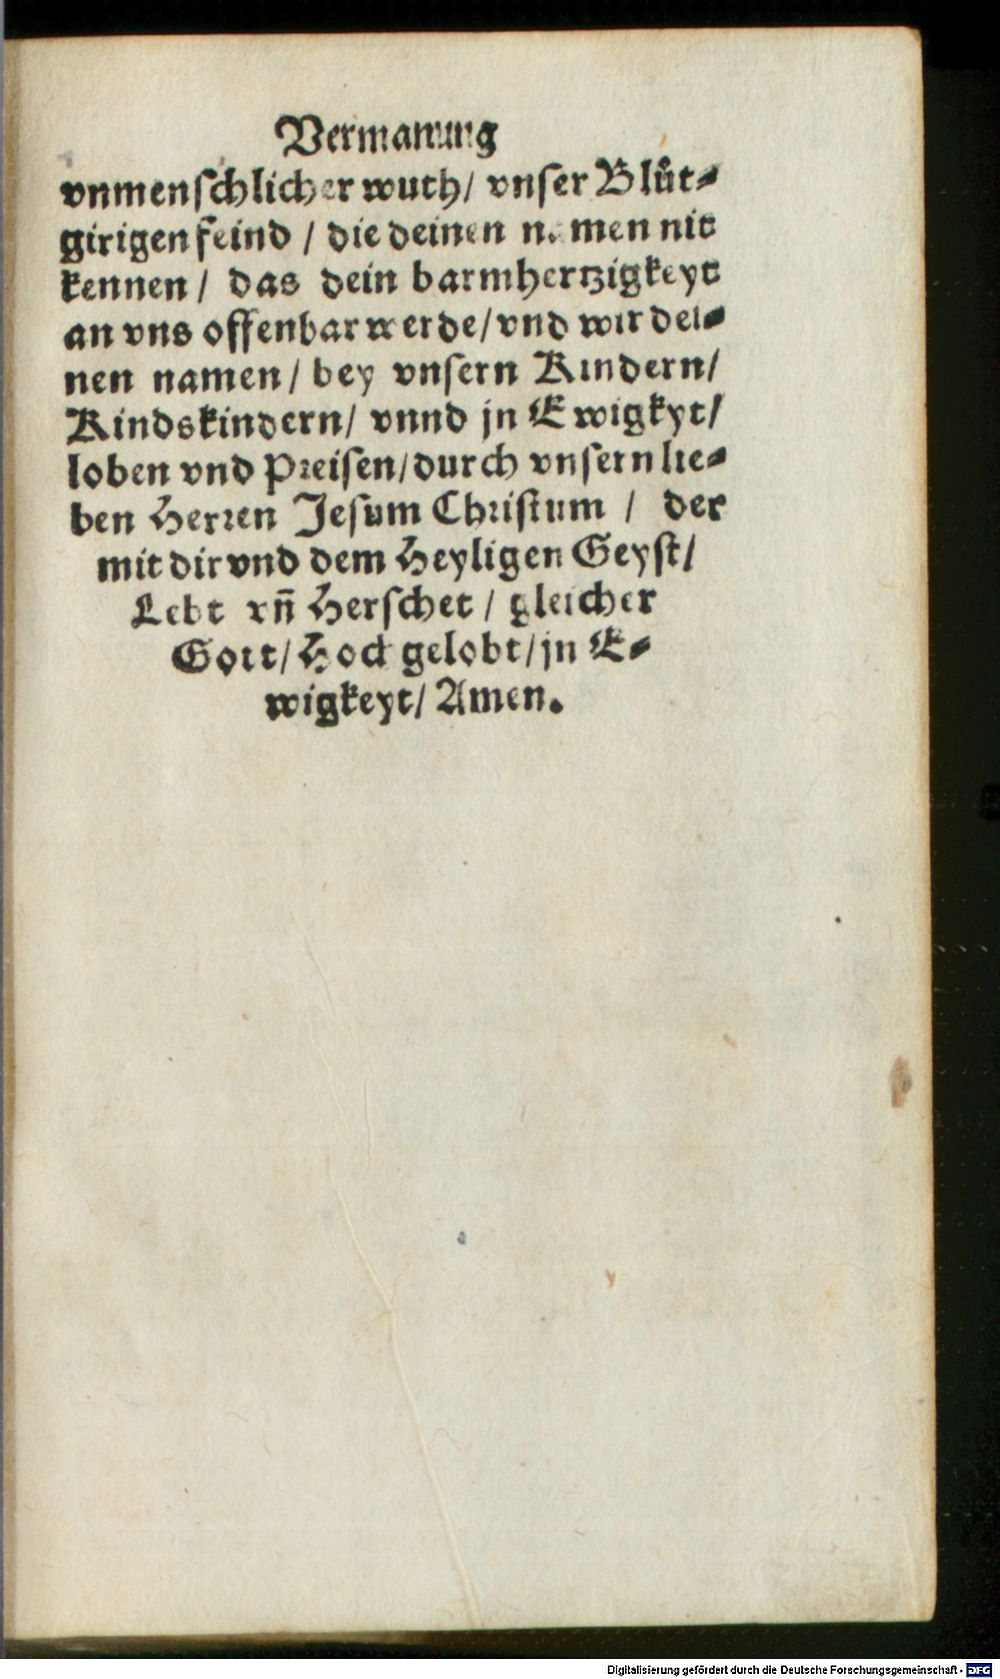 Vermanung
vnmenſchlicher wuth/ vnſer Blůt⸗
girigen feind / die deinen namen nit
kennen / das dein barmhertzigkeyt
an vns offenbar werde/vnd wir dei⸗
nen namen/ bey vnſern Kindern/
Kindskindern/ vnnd jn Ewigkyt/
loben vnd Preiſen/durch vnſern lie⸗
ben Herꝛen Jeſum Chꝛiſtum / der
mit dir vnd dem Heyligen Geyſt/
Lebt vñ Herſchet / gleicher
Gott/ Hoch gelobt/jn E⸗
wigkeyt/ Amen.
Digitalisierung gefördert durch die Deutsche Forschungsgemeinschaft - DFG